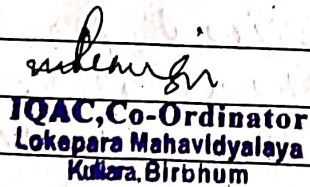 IQAC,Co-Ordinator
Lokepara Mahavidyalaya
Birbhum